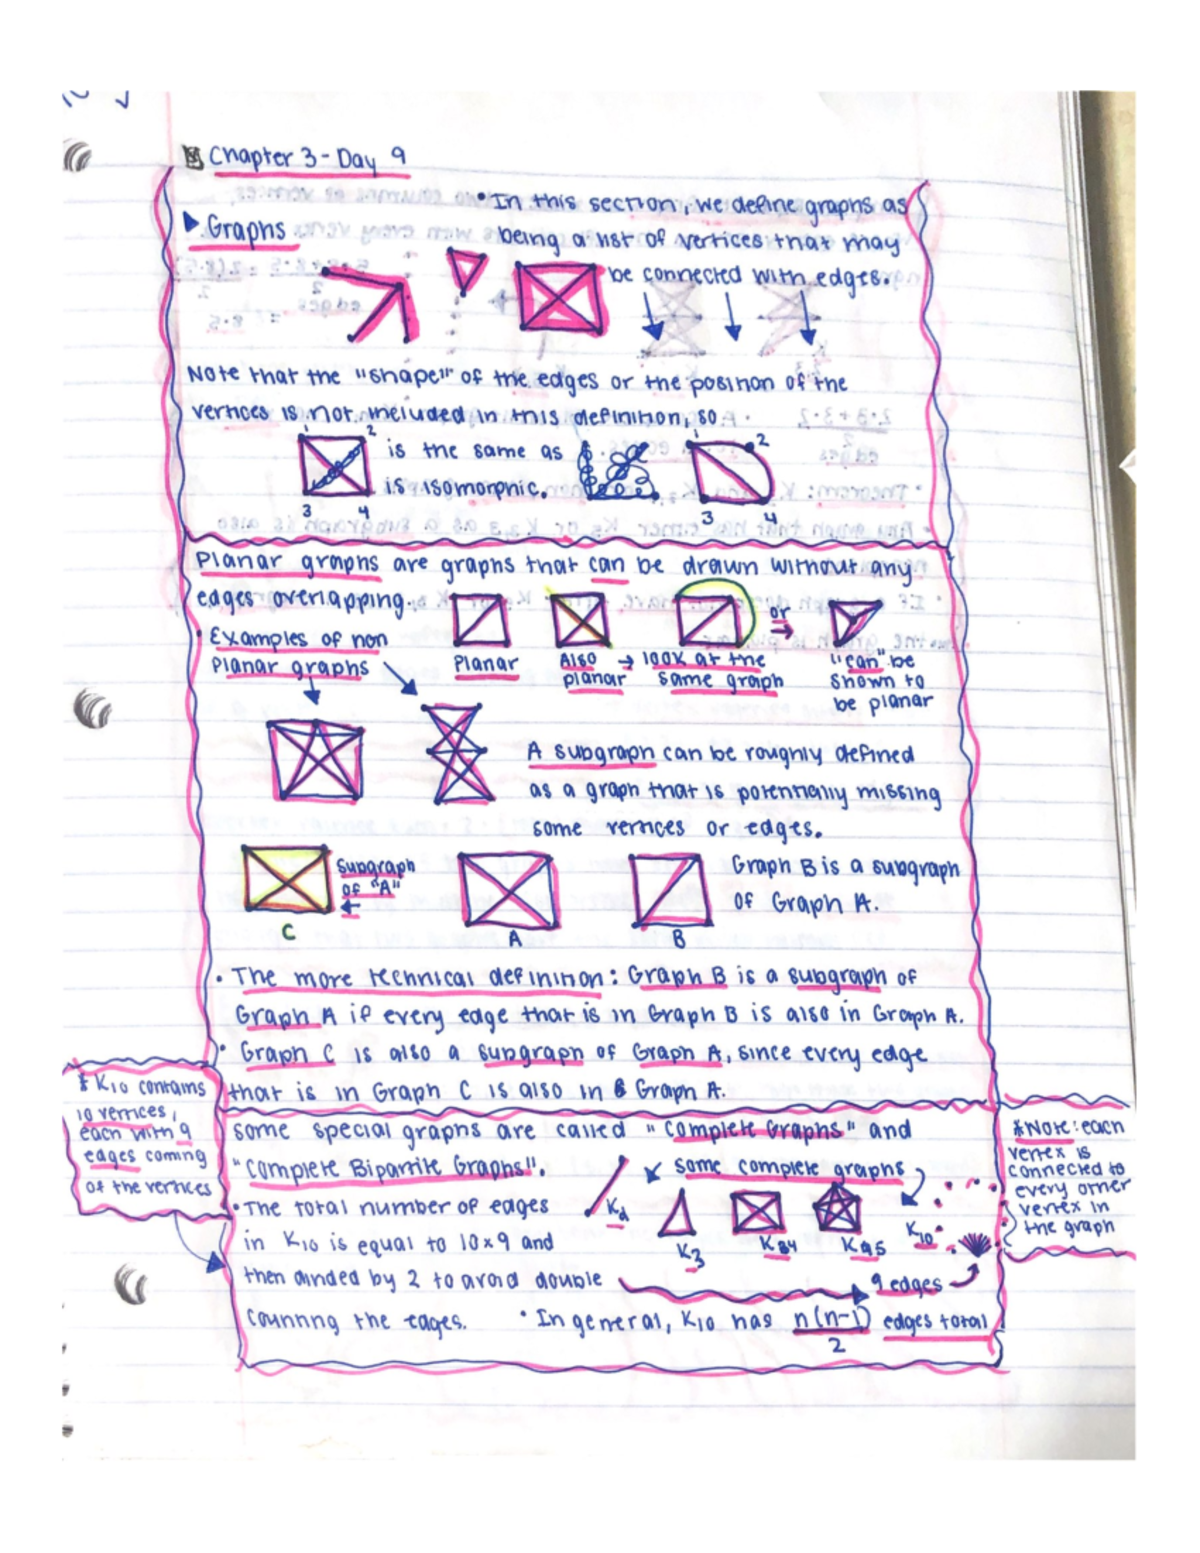 Chapter 3 - Day 9
• In this section, we define graphs as
▶ Graphs
being a list of vertices that may
be connected with edges.
Note that the "shape" of the edges or the position of the
vertices is not included in this definition, so
1 2
is the same as
1 2
is isomorphic.
3 4
3 4
Planar graphs are graphs that can be drawn without any
edges overlapping.
or
• Examples of non
Planar graphs
Planar
Also → look at the
planar same graph
"can" be
shown to
be planar
A subgraph can be roughly defined
as a graph that is potentially missing
some vertices or edges.
Subgraph
of "A"
Graph B is a subgraph
of Graph A.
C
A
B
• The more technical definition: Graph B is a subgraph of
Graph A if every edge that is in Graph B is also in Graph A.
• Graph C is also a subgraph of Graph A, since every edge
that is in Graph C is also in Graph A.
* K10 contains
10 vertices,
each with 9
edges coming
of the vertices
some special graphs are called "Complete Graphs" and
"Complete Bipartite Graphs".
some complete graphs
K2
K3
K4
K5
K10
*Note: each
vertex is
connected to
every other
vertex in
the graph
• The total number of edges
in K10 is equal to 10×9 and
then divided by 2 to avoid double
counting the edges.
9 edges
• In general, K10 has n(n-1)/2 edges total